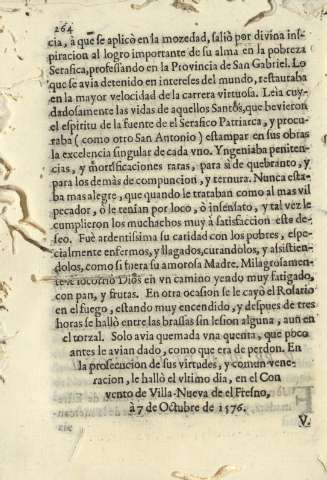 264
cia, à que se aplicò en la mozedad, saliò por divina ins-
piracion al logro importante de su alma en la pobreza
Serafica, professando en la Provincia de San Gabriel. Lo
que se avia detenido en intereses del mundo, restautaba
en la mayor velocidad de la carrera virtuosa. Leia cuy-
dadosamente las vidas de aquellos Santos, que bevieron
el espiritu de la fuente de el Serafico Patriarca, y procu-
raba (como otro San Antonio) estampar en sus obras
la excelencia singular de cada vno. Yngeniaba peniten-
cias, y mortificaciones raras, para sì de quebranto, y
para los demàs de compuncion, y ternura. Nunca esta-
ba mas alegre, que quando le trataban como al mas vil
pecador, ò le tenian por loco, ò insensato, y tal vez le
cumplieron los muchachos muy à satisfaccion este de-
seo. Fuè ardentissima su caridad con los pobres, espe-
cialmente enfermos, y llagados, curandolos, y assistien-
dolos, como si fuera su amorosa Madre. Milagrosamen-
te le socorriò Dios en vn camino yendo muy fatigado,
con pan, y frutas. En otra ocasion se le cayò el Rosario
en el fuego, estando muy encendido, y despues de tres
horas se hallò entre las brassas sin lesion alguna, aun en
el torzal. Solo avia quemada vna quenta, que poco
antes le avian dado, como que era de perdon. En
la prosecucion de sus virtudes, y comun vene-
racion, le hallò el vltimo dia, en el Con
vento de Villa-Nueva de el Fresno,
à 7 de Octubre de 1576.
V.